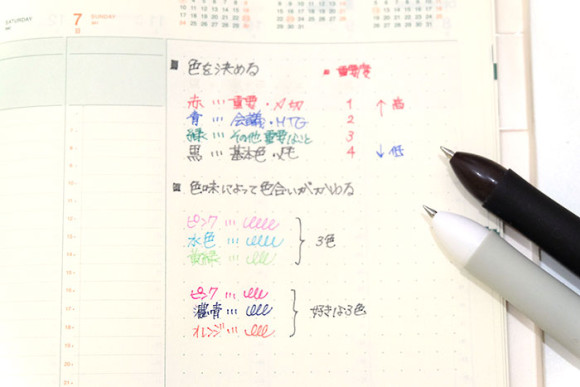 SATURDAY
7
日
SUNDAY
色を決める
重要度
赤 … 重要・〆切 1 ↑高
青 … 会議・MTG 2
緑 … その他重要なこと 3
黒 … 基本色・メモ 4 ↓低
色味によって色合いがかわる
ピンク …
水色 … 3色
黄緑 …
ピンク …
濃青 … 好きな3色
オレンジ …